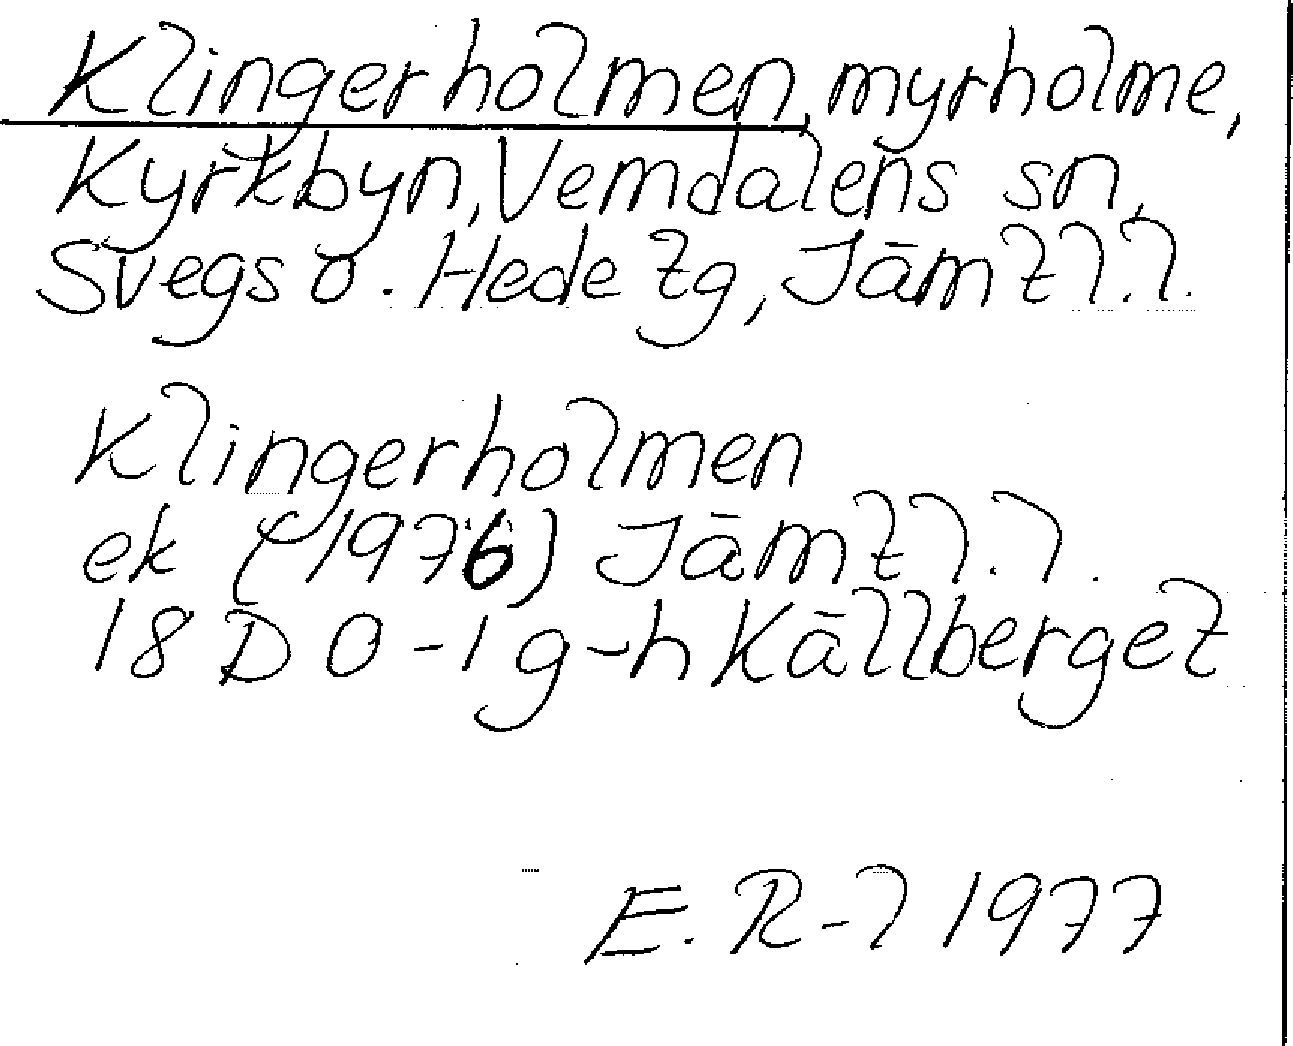 Klingerholmen, myrholme,
Kyrkbyn, Vemdalens sn,
Svegs o. Hede tg, Jämtl.l.
Klingerholmen
ek (1976) Jämtl.l.
18 D 0-1 g-h Källberget
E. R-l 1977